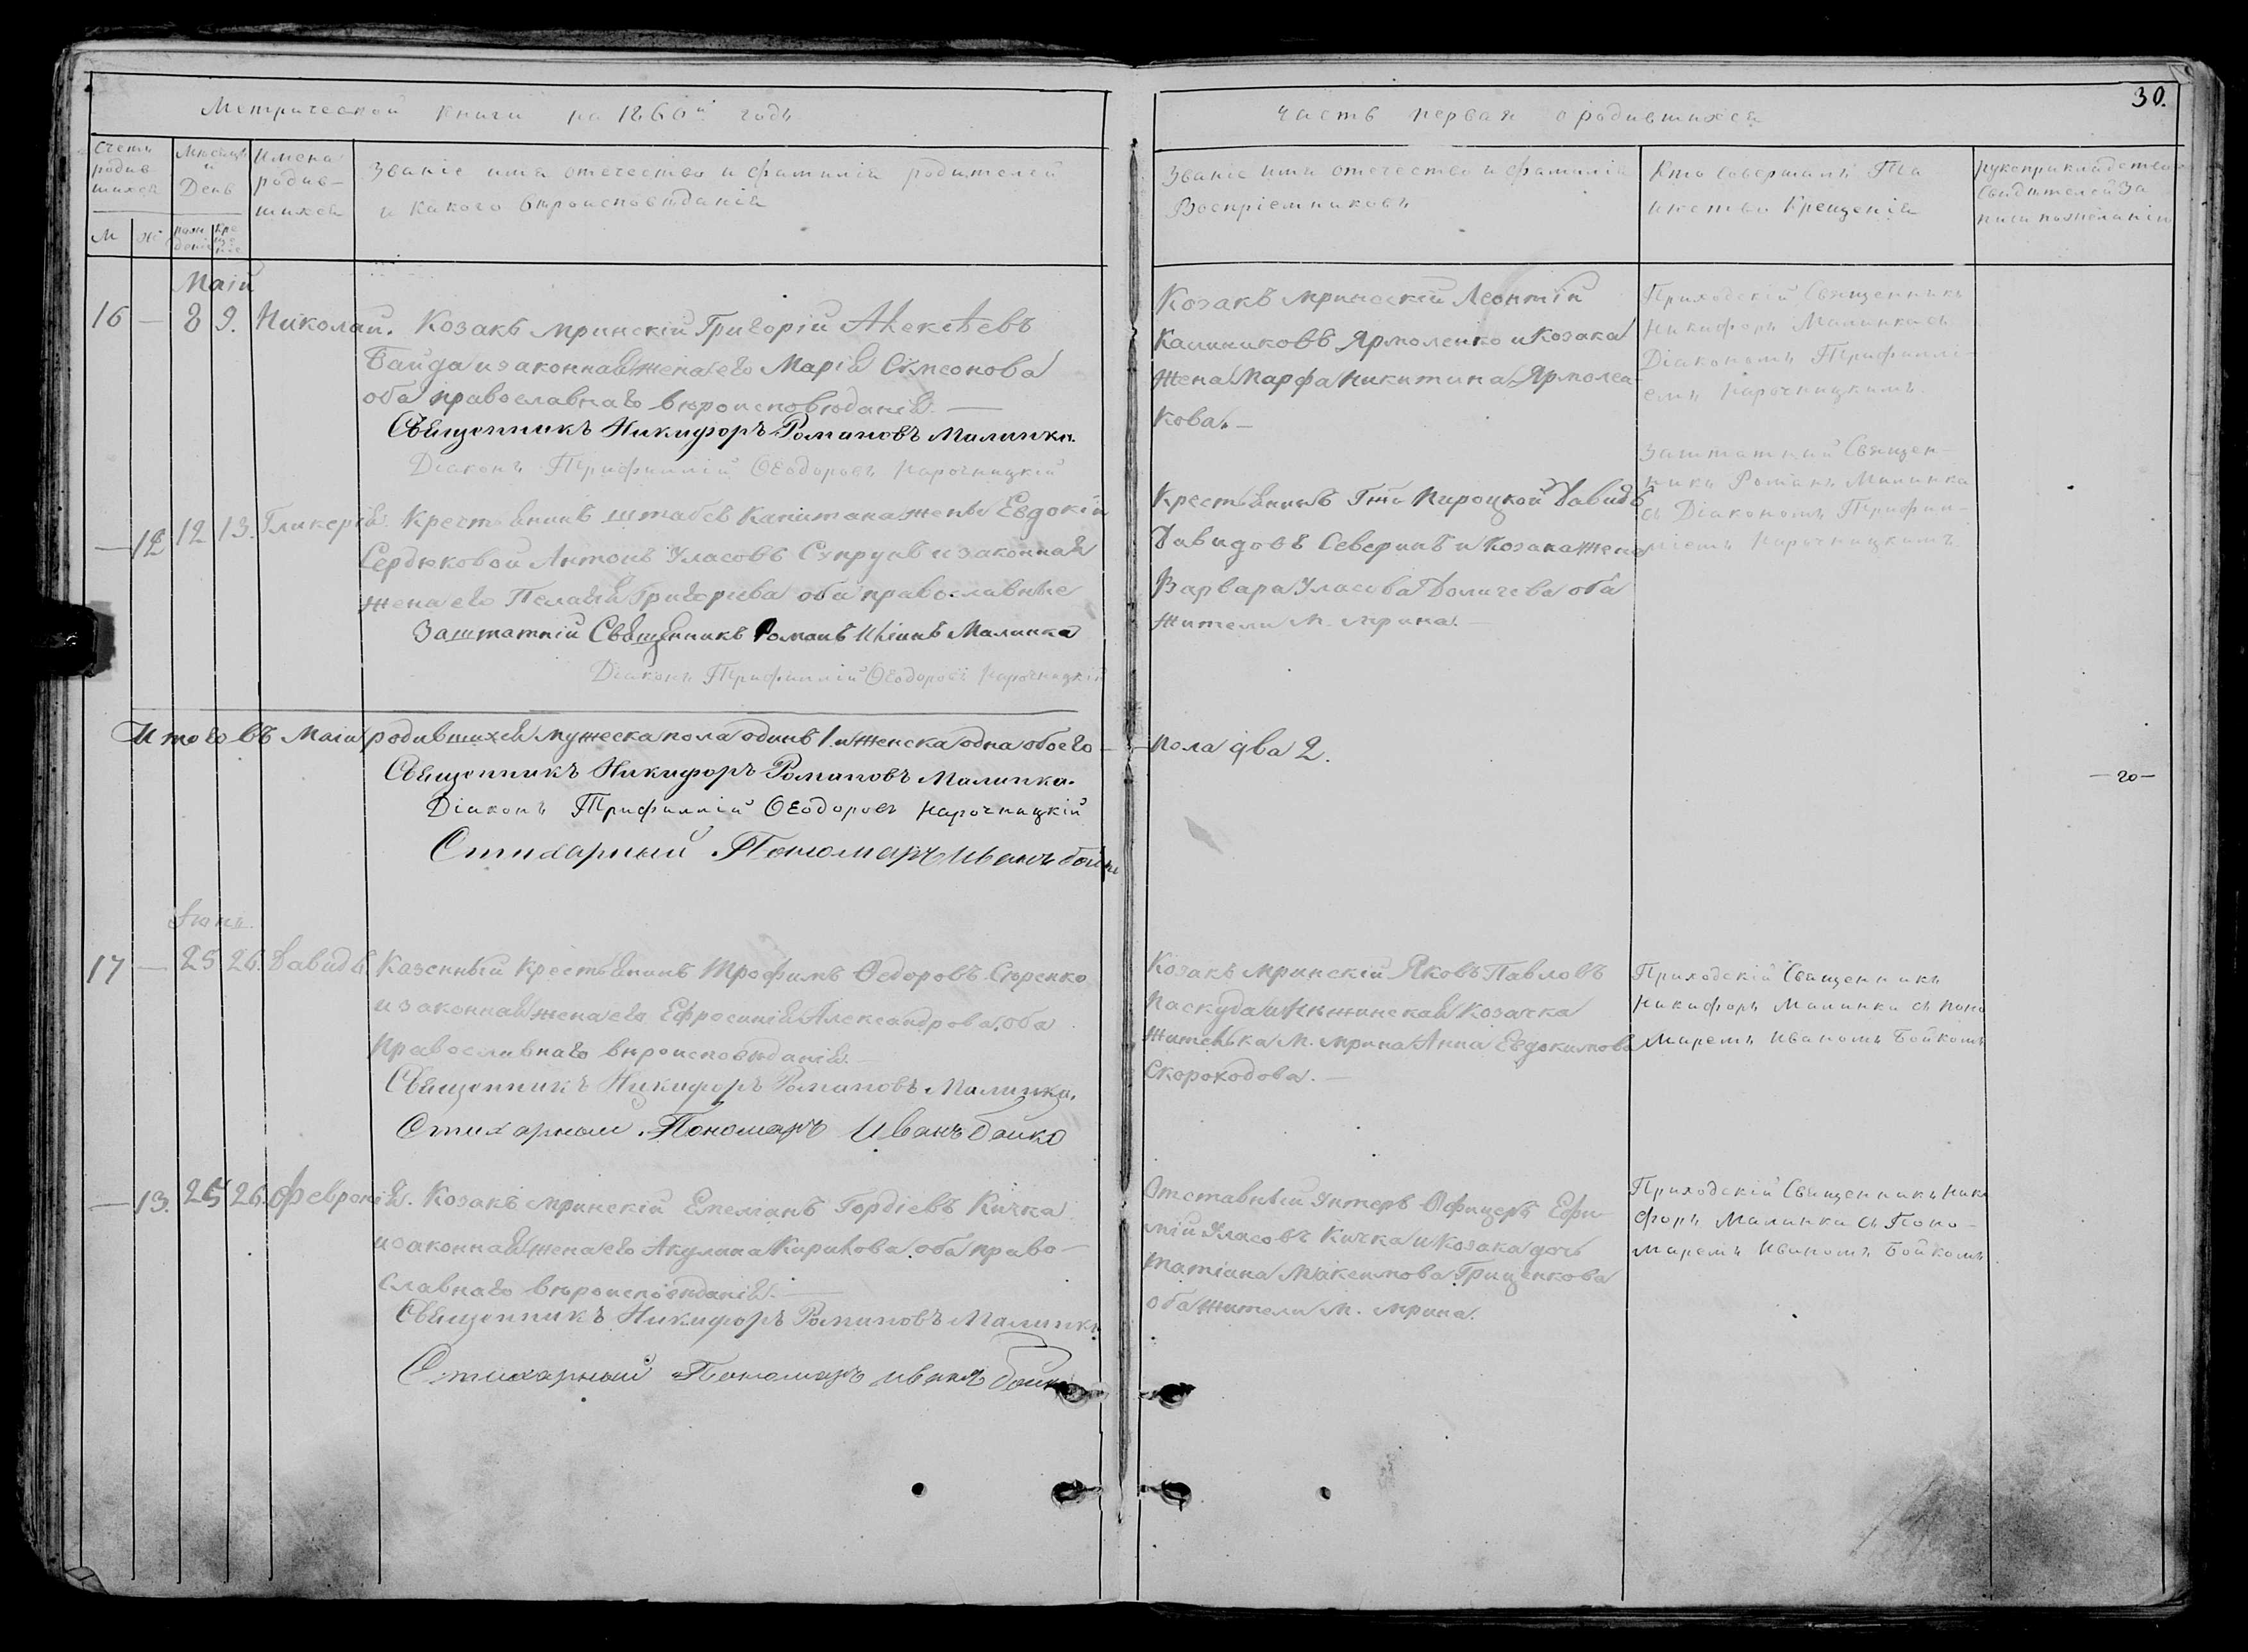 Метрической книги на 1860й годъ
часть первая о родившихся
30.
Счетъ родившихся
Мѣсяцъ и День
Имена родившихся
Званіе имя отечество и фамилія родителей
и какого вѣроисповѣданія
Званіе имя отечество и фамилія
Воспріемниковъ
Кто совершалъ Таинство Крещенія
рукоприкладство свидѣтелей записи по желанію
М Ж рожденія крещенія
Маій
16 — 8 9. Николай. Козакъ мринскій Григорій Алексѣевъ
Байда и законная жена его Марія Сѵмеонова
оба православнаго вѣроисповѣданія. —
Священникъ Никифоръ Романовъ Малинка.
Діаконъ Трифиллій Ѳеодоровъ Нарочницкій
Козакъ мринскій Леонтій
Калиниковъ Ярмоленко и Козака
жена Марфа Никитина Ярмолен-
кова. —
Приходскій Священникъ
Никифоръ Малинка съ
Діакономъ Трифиллі-
емъ Нарочницкимъ.
— 12 12 13. Гликерія. Крестьянинъ штабсъ капитана жены Евдокіи
Сердюковой Антонъ Уласовъ Супрунъ и законная
жена его Пелагія Григоріева оба православные
Заштатній Священникъ Романъ Иліинъ Малинка
Діаконъ Трифиллій Ѳеодоровъ Нарочницкій
Крестьянинъ Гжи Пироцкой Давидъ
Давидовъ Северинъ и козака жена
Варвара Уласова Доличева оба
жители м. Мрина. —
Заштатный Священ-
никъ Романъ Малинка
съ Діакономъ Трифил-
ліемъ Нарочницкимъ
Итого въ Маіи родившихся мужеска пола одинъ 1. и женска одна обоего —
— пола два 2.
Священникъ Никифоръ Романовъ Малинка.
Діаконъ Трифиллій Ѳеодоровъ Нарочницкій
Стихарный Пономарь Иванъ Бойко
— 20 —
Іюнь.
17 — 25 26. Давидъ. Казенный крестьянинъ Трофимъ Ѳедоровъ Сюренко
и законная жена его Ефросинія Александрова, оба
православнаго вѣроисповѣданія. —
Священникъ Никифоръ Романовъ Малинка.
Стихарный Пономарь Иванъ Бойко
Козакъ мринскій Яковъ Павловъ
Паскуда и Нѣжинская козачка
жителька м. Мрина Анна Евдокимова
Скороходова. —
Приходскій Священникъ
Никифоръ Малинка съ Поно
маремъ Иваномъ Бойкомъ
— 13. 25 26. Февронія. Козакъ мринскій Емеліанъ Гордіевъ Кичка
и законная жена его Акулина Кирилова, оба право-
славнаго вѣроисповѣданія. —
Священникъ Никифоръ Романовъ Малинка
Стихарный Пономарь Иванъ Бойко
Отставный Унтеръ Офицеръ Ефи-
мій Уласовъ Кичка и Козака дочь
Татіана Максимова Грищенкова
оба жители м. Мрина.
Приходскій Священникъ Ники
форъ Малинка съ Поно-
маремъ Иваномъ Бойкомъ